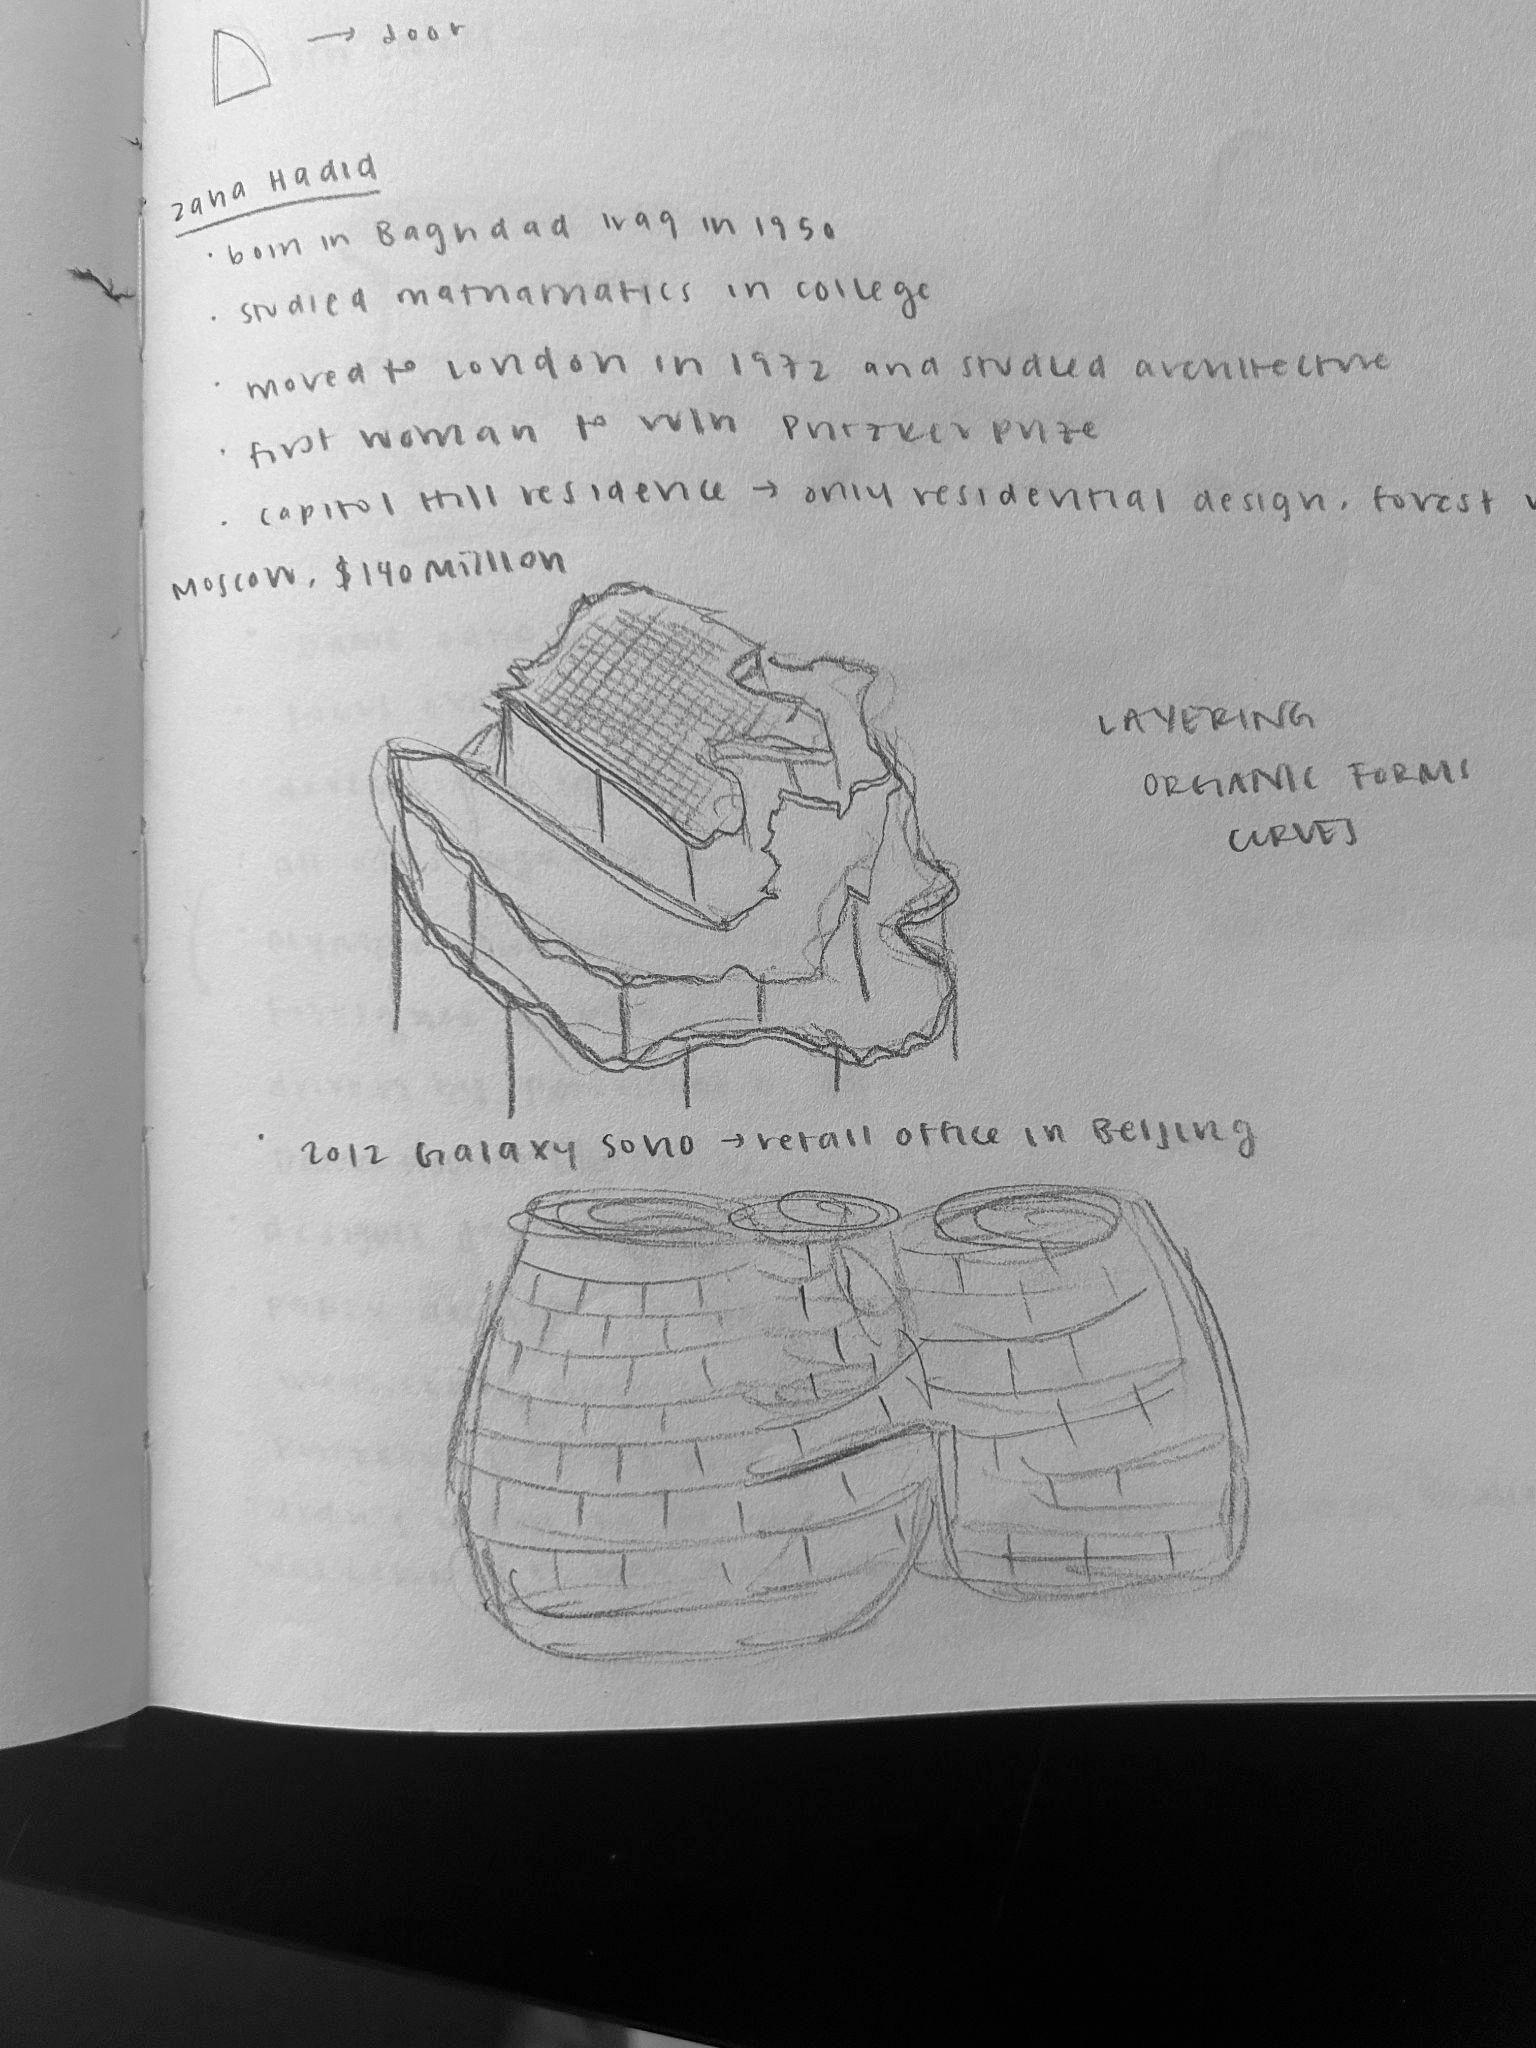 → door
Zaha Hadid
· born in Baghdad Iraq in 1950
· studied mathamatics in college
· moved to London in 1972 and studied architecture
· first woman to win Pritzker prize
· capitol Hill residence → only residential design. forest
Moscow, $140 Million
LAYERING
ORGANIC FORMS
CURVES
· 2012 Galaxy Soho → retail office in Beijing